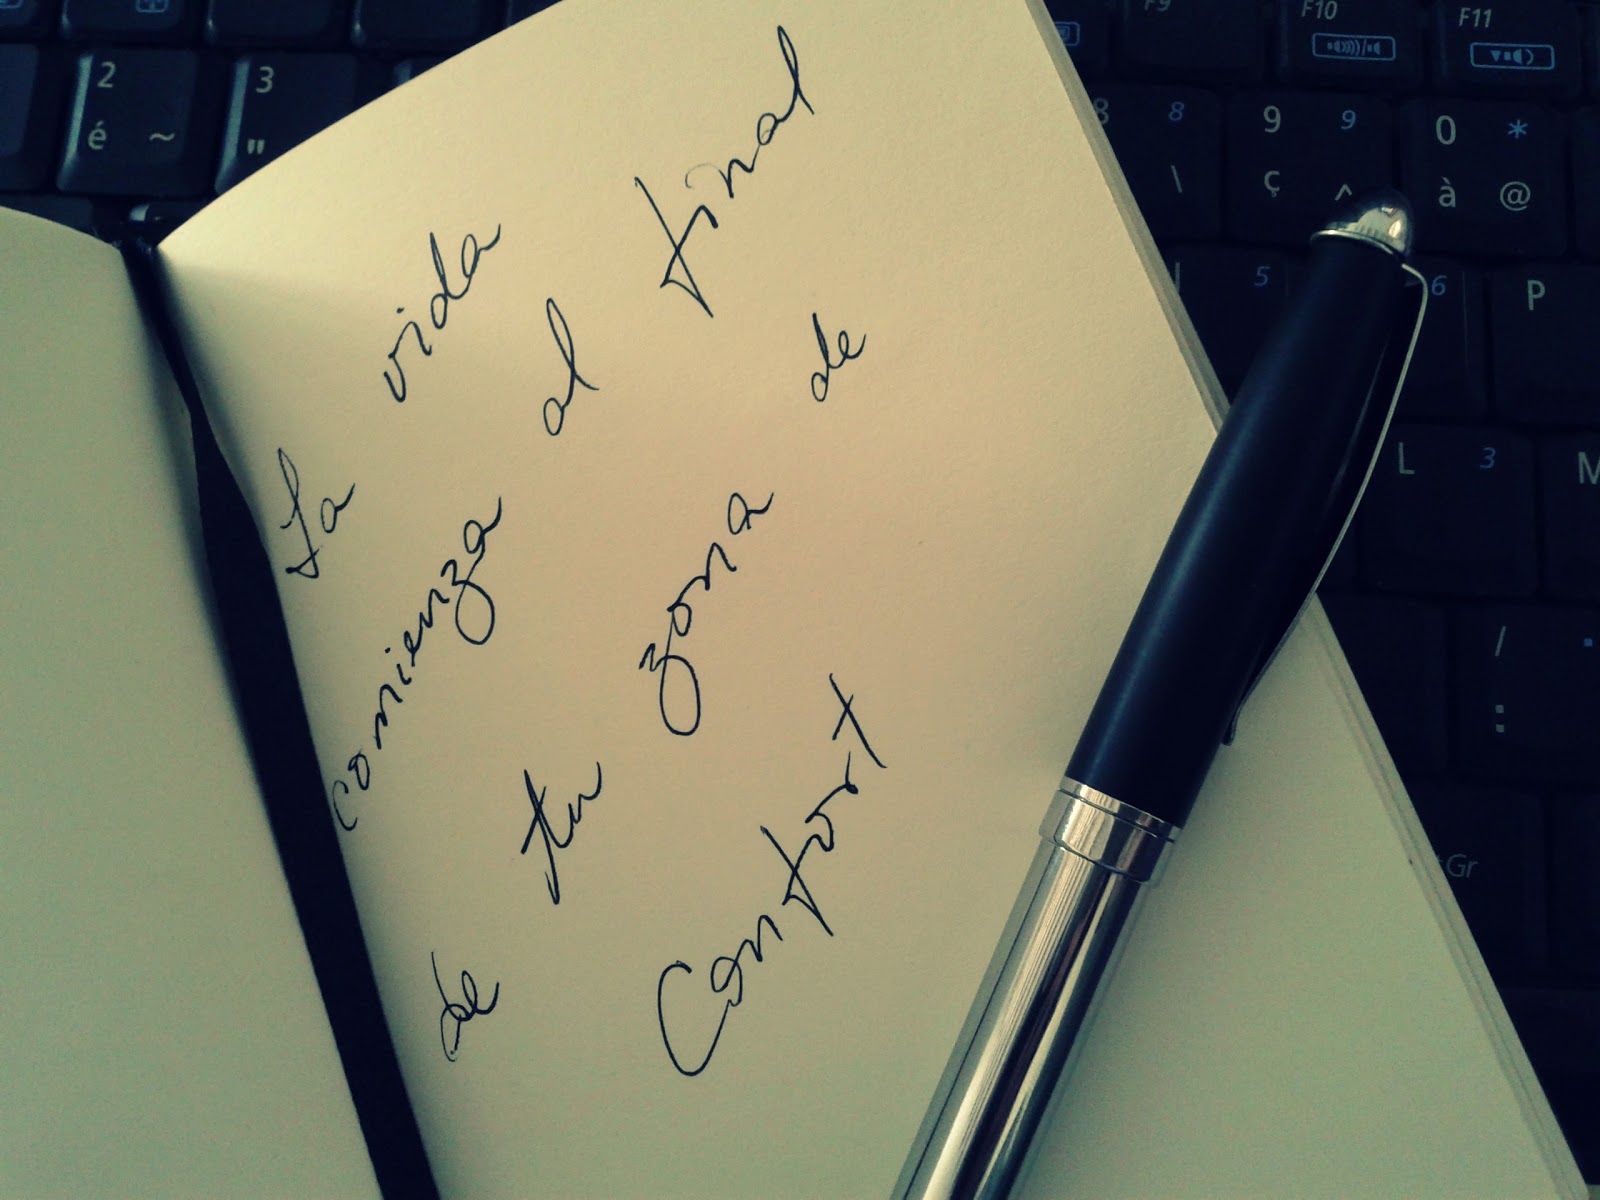 La vida
comienza al final
de tu zona de
Confort
2
é ~
3
"
F9
F10
F11
8 8
\
9 9
ç ^
0 *
à @
5
6
P
L 3
M
/
:
Gr